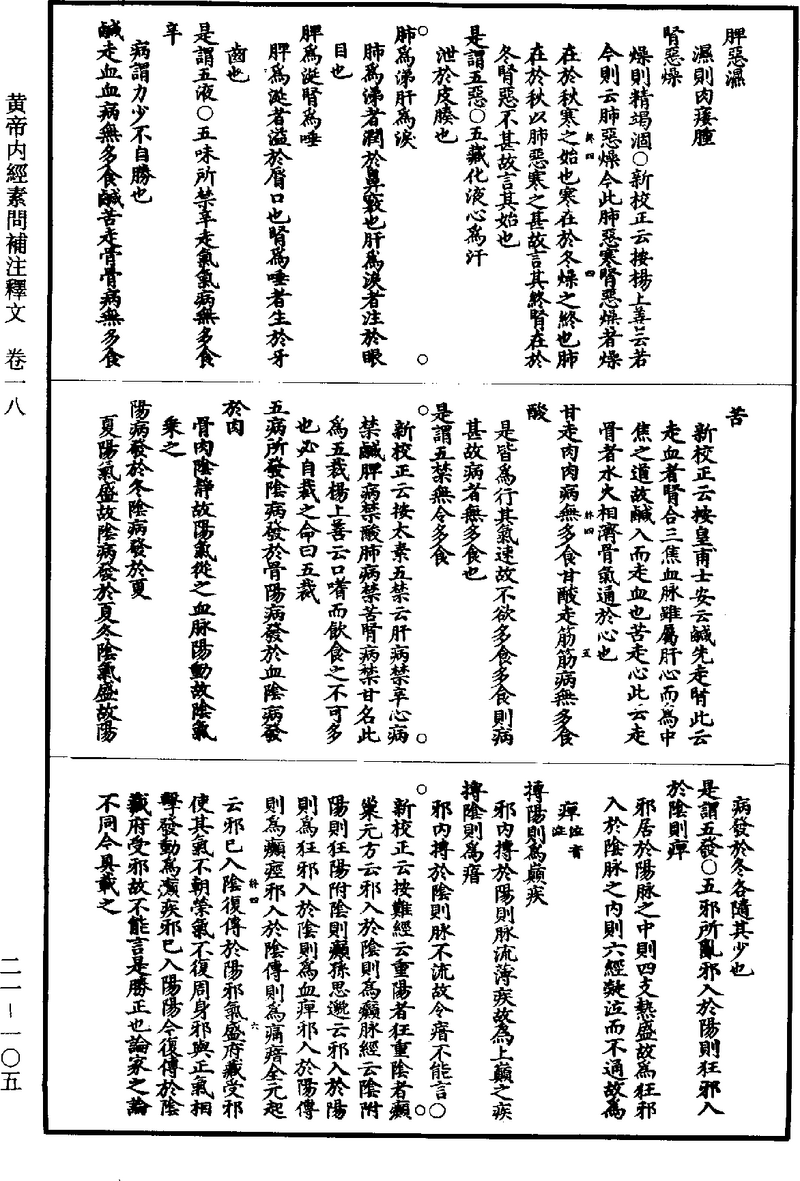 黄帝内經素問補注釋文　卷一八
二一－一〇五
脾惡濕
濕則肉痿腫
腎惡燥
燥則精竭涸○新校正云按楊上善云若
今則云肺惡燥今此肺惡寒腎惡燥者燥
在於秋寒之始也寒在於冬燥之終也肺
在於秋以肺惡寒之甚故言其終腎在於
冬腎惡不甚故言其始也
是謂五惡○五藏化液心爲汗
泄於皮腠也
肺爲涕肝爲淚
肺爲涕者潤於鼻竅也肝爲淚者注於眼
目也
脾爲涎腎爲唾
脾爲涎者溢於脣口也腎爲唾者生於牙
齒也
是謂五液○五味所禁辛走氣氣病無多食
辛
病謂力少不自勝也
鹹走血血病無多食鹹苦走骨骨病無多食
苦
新校正云按皇甫士安云鹹先走腎此云
走血者腎合三焦血脉雖屬肝心而爲中
焦之道故鹹入而走血也苦走心此云走
骨者水火相濟骨氣通於心也
甘走肉肉病無多食甘酸走筋筋病無多食
酸
是皆爲行其氣速故不欲多食多食則病
甚故病者無多食也
是謂五禁無令多食
新校正云按太素五禁云肝病禁辛心病
禁鹹脾病禁酸肺病禁苦腎病禁甘名此
爲五裁楊上善云口嗜而飲食之不可多
也必自裁之命曰五裁
五病所發陰病發於骨陽病發於血陰病發
於肉
骨肉陰静故陽氣從之血脉陽動故陰氣
乘之
陽病發於冬陰病發於夏
夏陽氣盛故陰病發於夏冬陰氣盛故陽
病發於冬各隨其少也
是謂五發○五邪所亂邪入於陽則狂邪入
於陰則痺
邪居於陽脉之中則四支熱盛故爲狂邪
入於陰脉之内則六經凝泣而不通故爲
痺
搏陽則爲巔疾
邪内搏於陽則脉流薄疾故爲上巔之疾
搏陰則爲瘖
邪内搏於陰則脉不流故令瘖不能言○
新校正云按難經云重陽者狂重陰者癲
巢元方云邪入於陰則爲癲脉經云陰附
陽則狂陽附陰則癲孫思邈云邪入於陽
則爲狂邪入於陰則爲血痺邪入於陽傳
則爲癲痙邪入於陰傳則爲痛瘖全元起
云邪已入陰復傳於陽邪氣盛府藏受邪
使其氣不朝榮氣不復周身邪與正氣相
擊發動爲癲疾邪已入陽陽今復傳於陰
藏府受邪故不能言是勝正也論家之論
不同今具載之